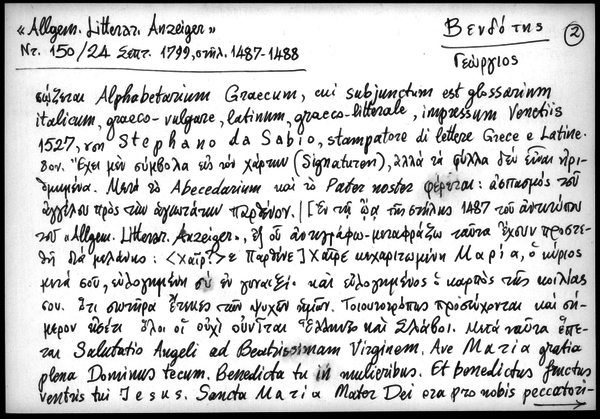 «Allgem. Litterar. Anzeiger»
Βενδότης
2
Nr. 150/24 Σεπτ. 1799, στήλ. 1487-1488
Γεώργιος
σώζεται Alphabetarium Graecum, cui subjunctum est glossarium
italicum, graeco-vulgare, latinum, graeco-litterale, impressum Venetiis
1527, von Stephano da Sabio, stampatore di lettere Grece e Latine.
8ον. Ἔχει μὲν σύμβολα εἰς τὸν χάρτην (Signaturen), ἀλλὰ τὰ φύλλα δὲν εἶναι ἠρι-
θμημένα. Μετὰ τὸ Abecedarium καὶ τὸ Pater noster φέρεται: ἀσπασμὸς τοῦ
ἀγγέλου πρὸς τὴν ἁγιωτάτην παρθένον. | [Ἐν τῇ ᾧα τῆς στήλης 1487 τοῦ ἀντιτύπου
τοῦ «Allgem. Litterar. Anzeiger», ἐξ οὗ ἀντιγράφω-μεταφράζω ταῦτα ἔχουν προστε-
θῆ διὰ μελάνης: <Χαῖρ[?]>ε Παρθένε] Χαῖρε κεχαριτωμένη Μαρία, ὁ κύριος
μετά σου, εὐλογημένη σὺ ἐν γυναιξὶ καὶ εὐλογημένος ὁ καρπὸς τῆς κοιλίας
σου. ὅτι σωτῆρα ἔτεκες τῶν ψυχῶν ἡμῶν. Τοιουτοτρόπως προσεύχονται καὶ σή-
μερον ἔτι ὅλοι οἱ οὐχὶ οὐνῖται Ἕλληνες καὶ Σλάβοι. Μετὰ ταῦτα ἕπε-
ται Salutatio Angeli ad Beatissimam Virginem. Ave Maria gratia
plena Dominus tecum. Benedicta tu in mulieribus. Et benedictus fructus
ventris tui Jesus. Sancta Maria Mater Dei ora pro nobis peccatori-